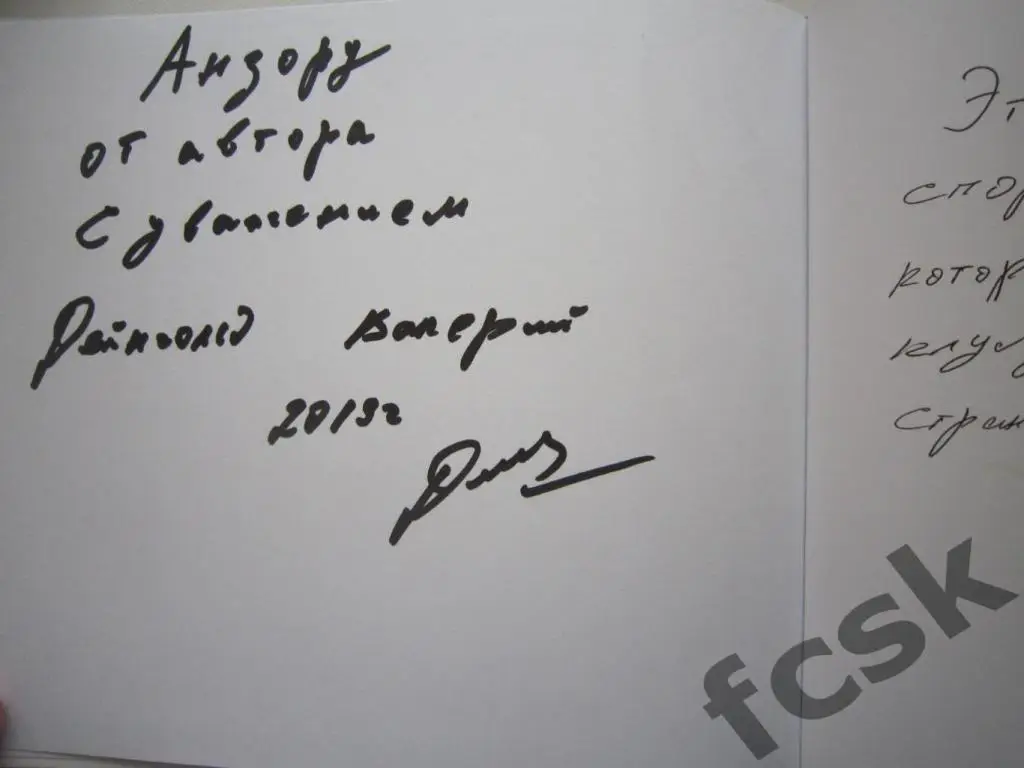 Андору
от автора
с уважением
Рейнгольд Валерий
2013г
Эт
спор
котор
клуб
стран
fcsk